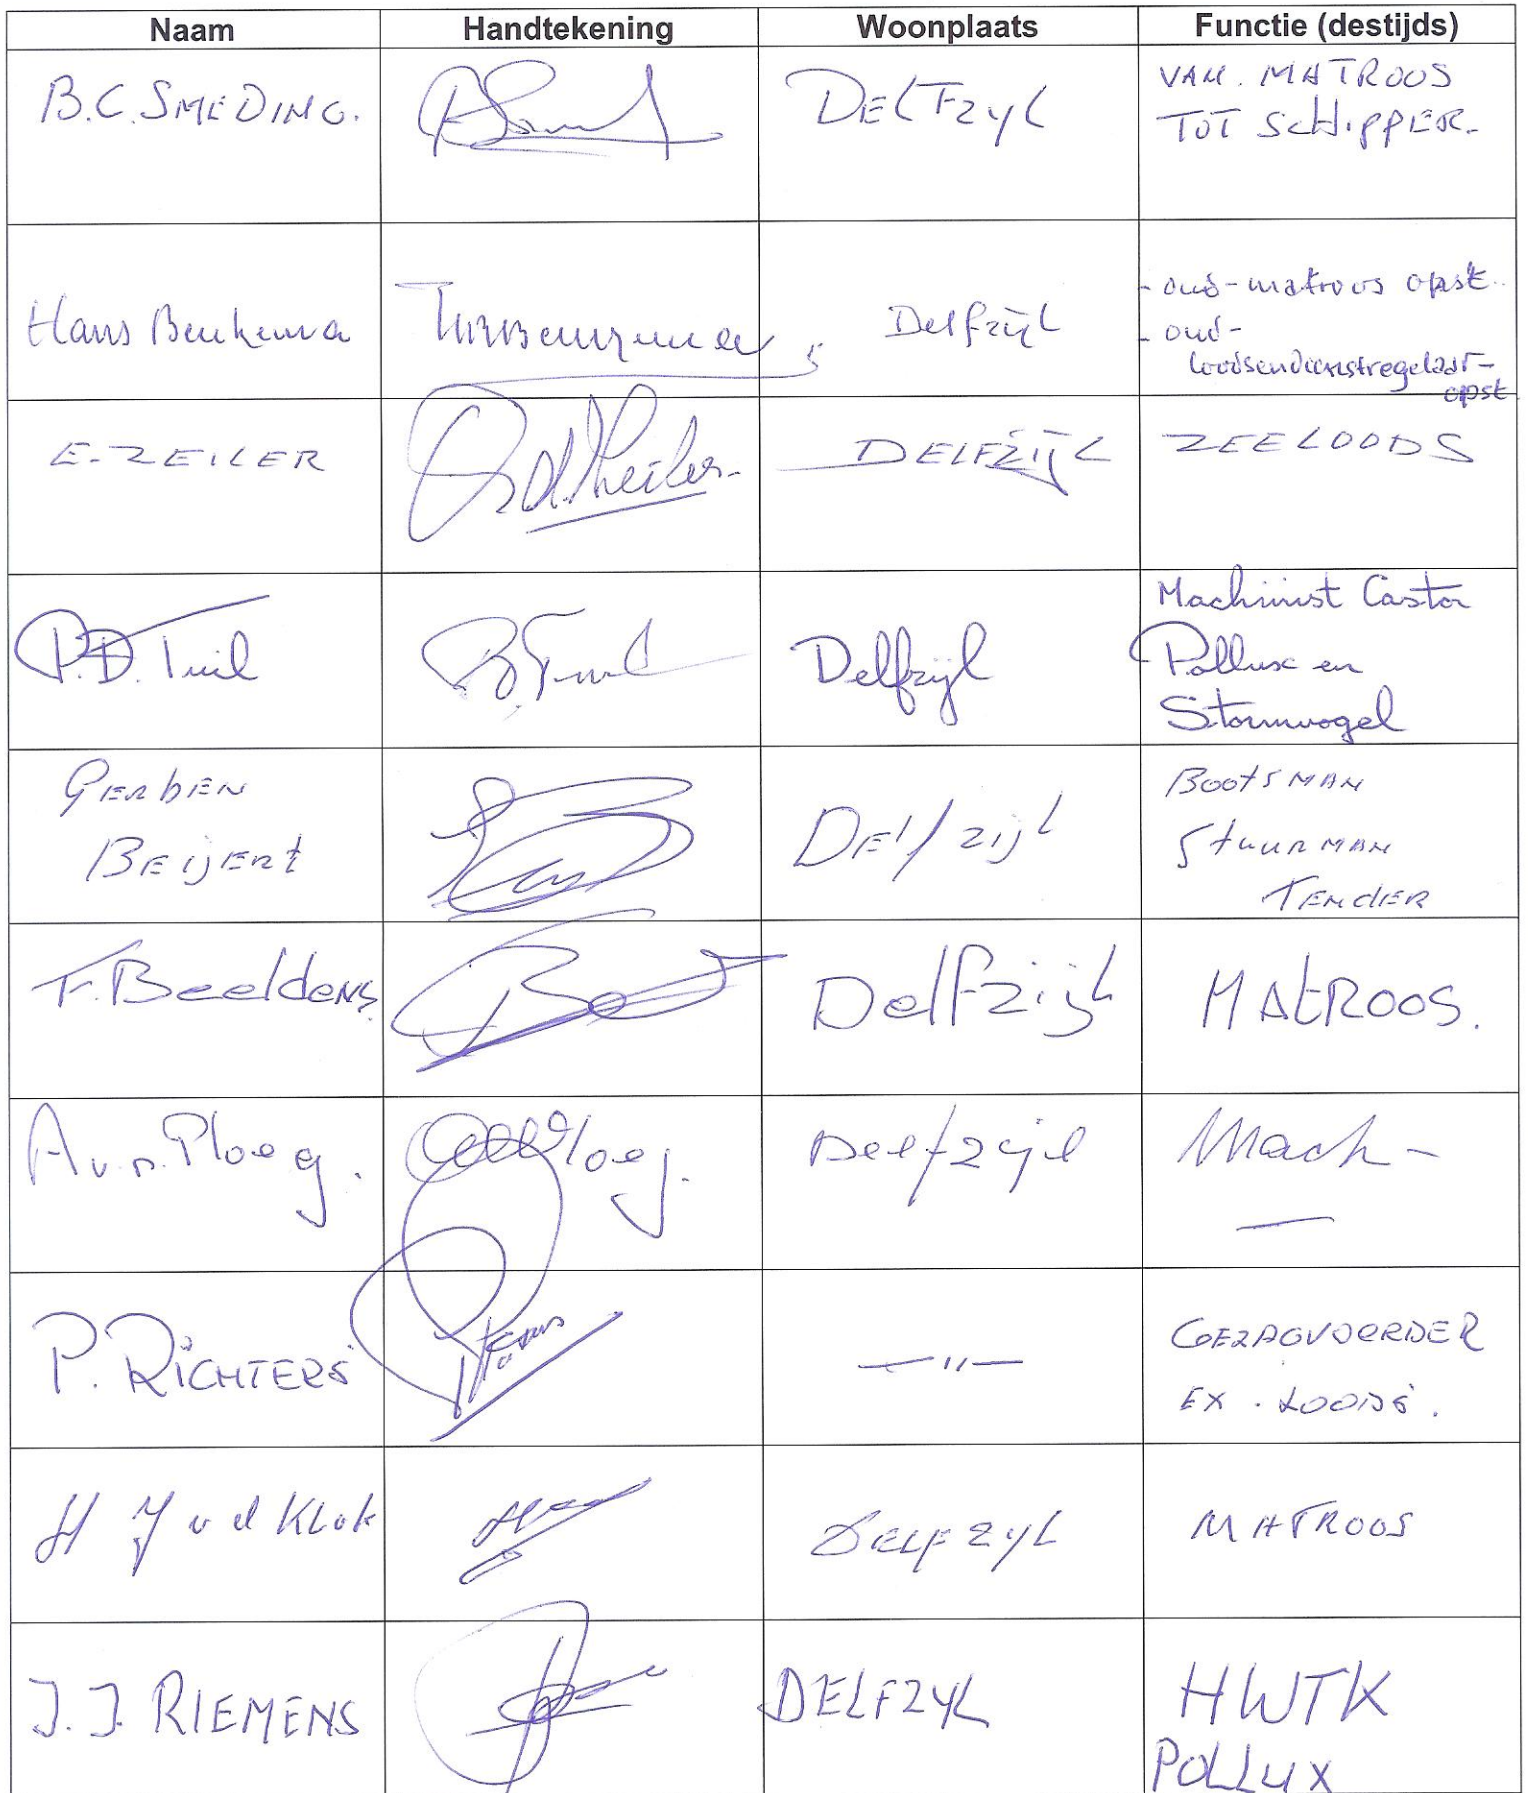 Naam Handtekening Woonplaats Functie (destijds)
B.C. SMEDING. DELFZYL VAN. MATROOS
TOT SCHIPPER-
Hans Beukema Delfzijl - oud-matroos opst.
- oud-
loodsendienstregelaar-
opst
E. ZEILER DELFZIJL ZEELOODS
P.D. Tuil Delfzijl Machinist Castor
Pollux en
Stormvogel
GERbEN BootsMAN
BEijERt DElfzijl StuurMAN
TENdER
F. BeeldeNS. Delfzijl MAtROOS.
A v.n. Ploeg. Delfzijl Mach -
—
P. RICHTERS —"— GEZAGVOERDER
EX. LOODS.
H J v d Klok DELFZYL MATROOS
J.J. RIEMENS DELFZYL HWTK
POLLUX